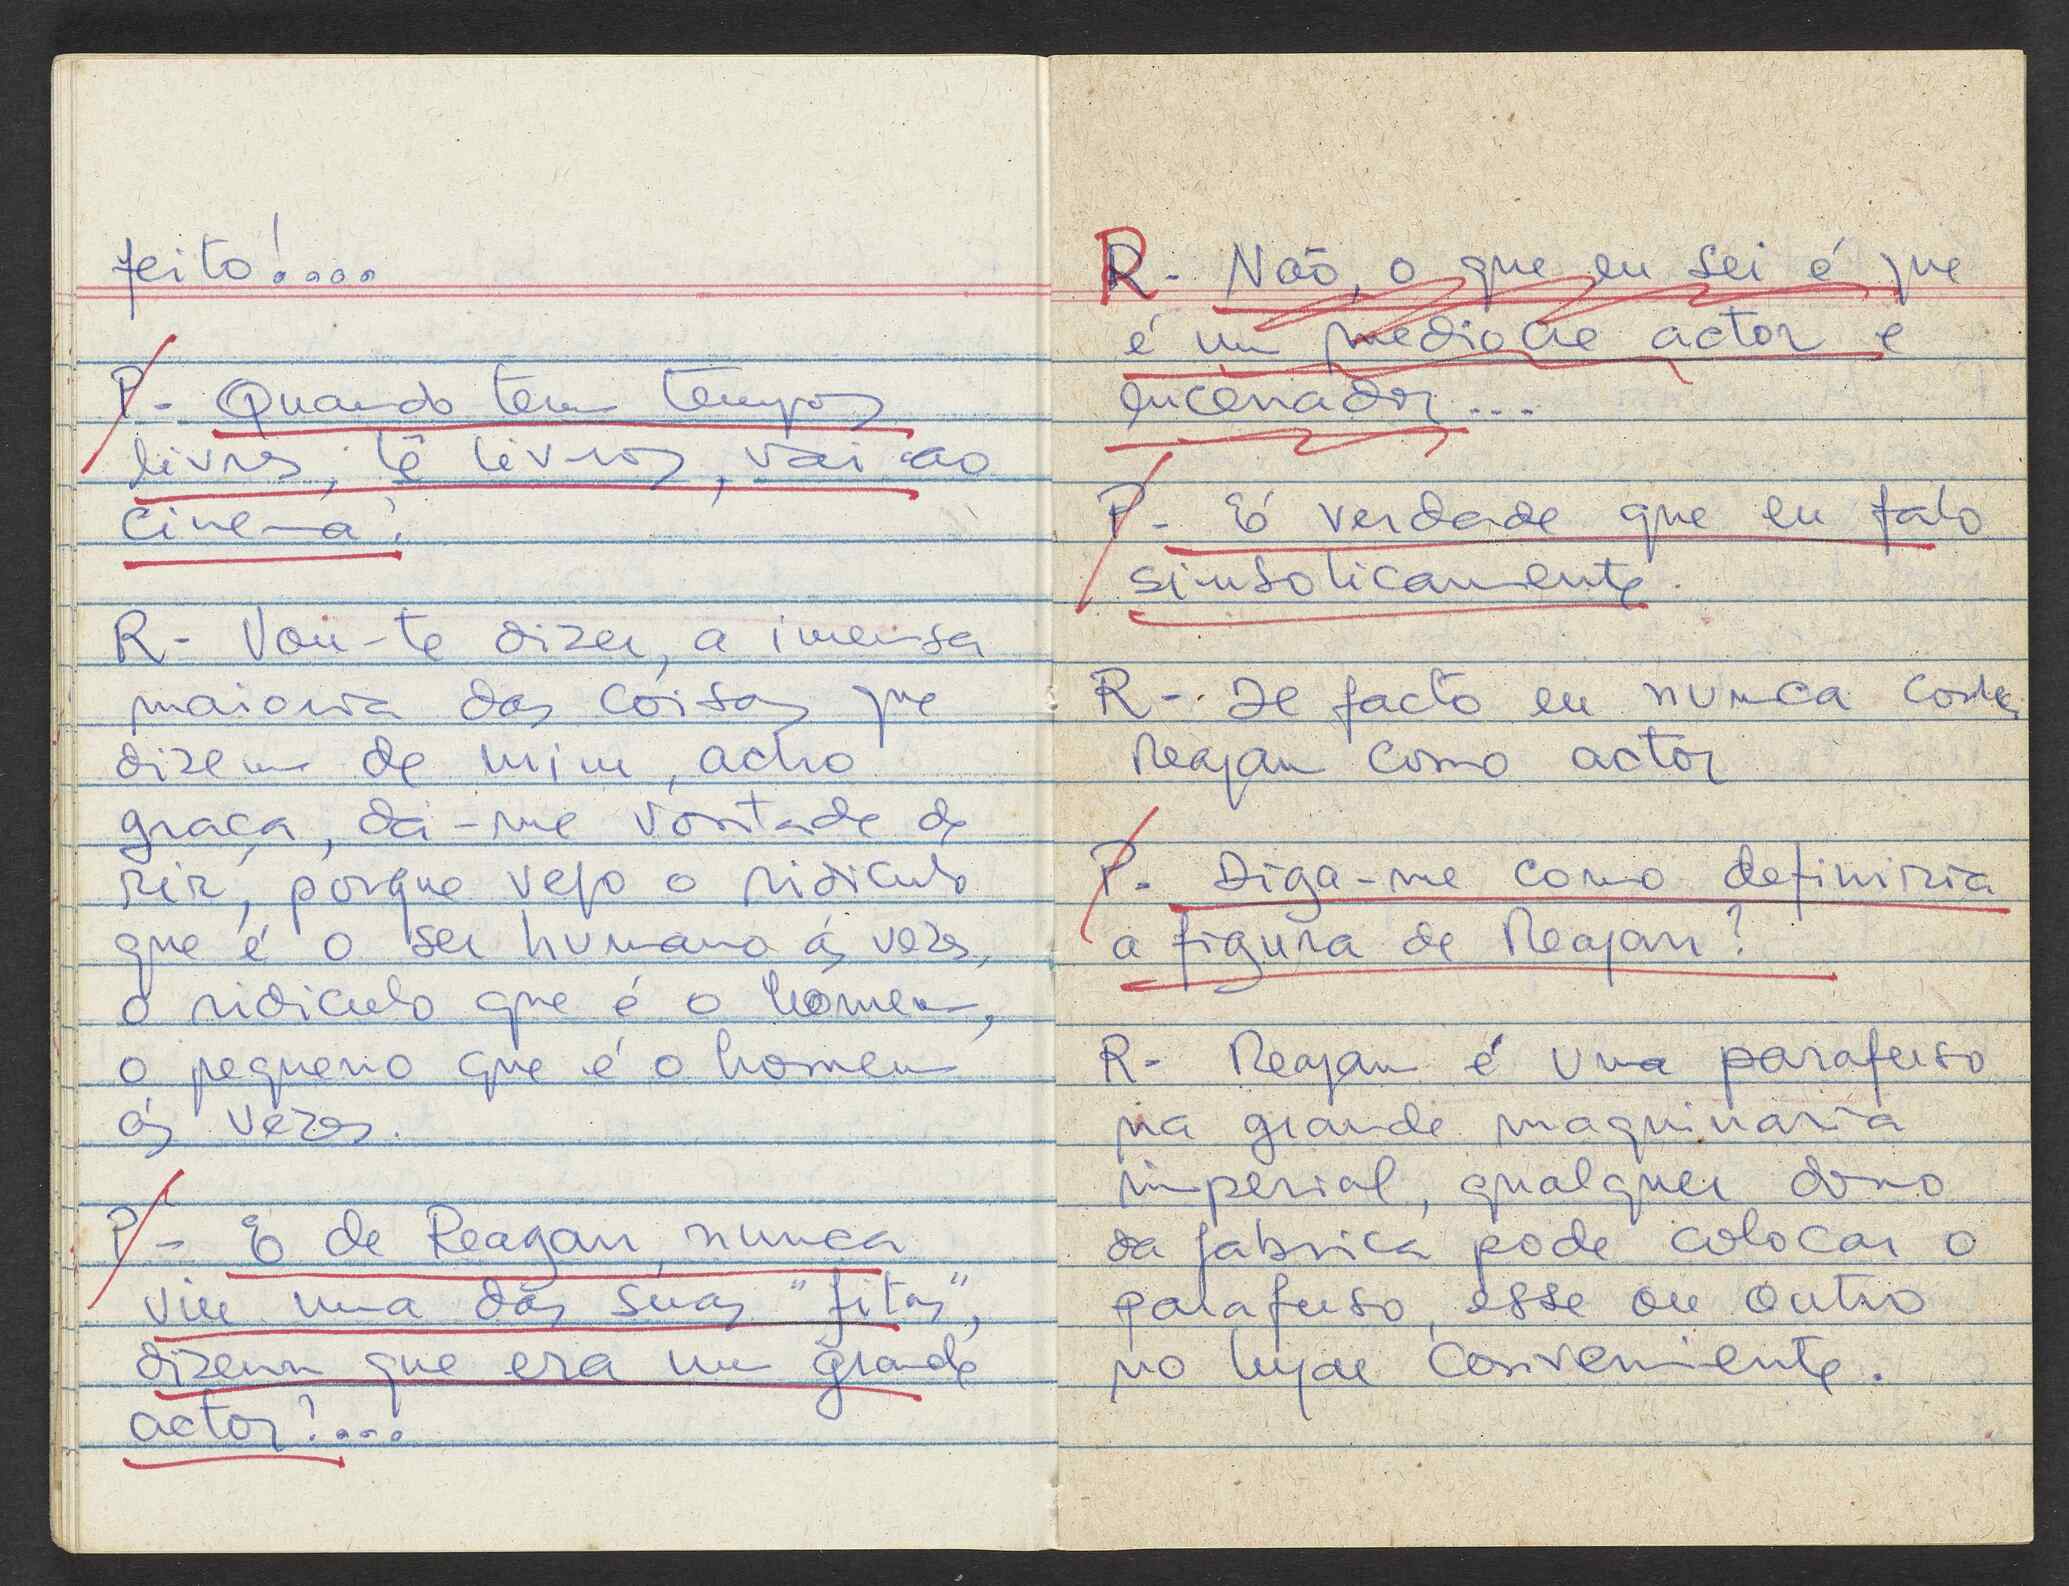 feito!....
P- Quando tem tempos
livres, lê livros, vai ao
cinema?
R- Vou-te dizer, a imensa
maioria das coisas que
dizem de mim, acho
graça, dá-me vontade de
rir, porque vejo o ridiculo
que é o ser humano ás vezes,
o ridiculo que é o homem,
o pequeno que é o homem
ás vezes.
P- E de Reagan, nunca
viu uma das suas "fitas",
dizem que era um grande
actor?....
R- Não, o que eu sei é que
é um mediocre actor e
encenador...
P- É verdade que eu falo
simbolicamente.
R- De facto eu nunca
Reagan como actor
P- Diga-me como definiria
a figura de Reagan?
R- Reagan é uma parafuso
na grande maquinaria
imperial, qualquer dono
da fabrica pode colocar o
parafuso, esse ou outro
no lugar conveniente.